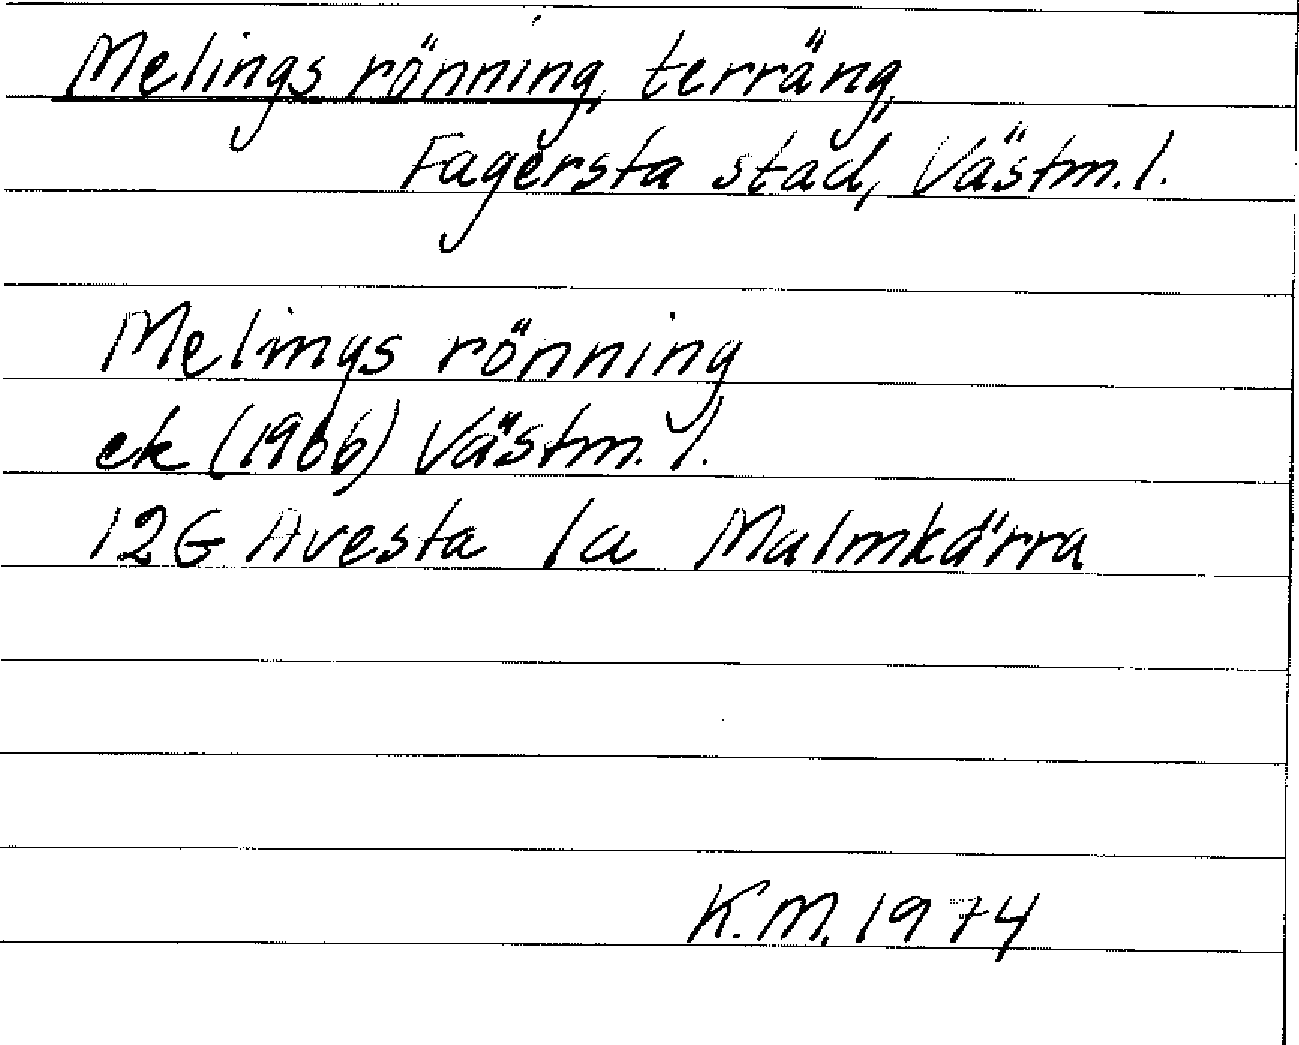 Melings rönning, terräng,
Fagersta stad, Västm. l.
Melings rönning
ek (1966) Västm. l.
12G Avesta 1a Malmkärra
K.M. 1974